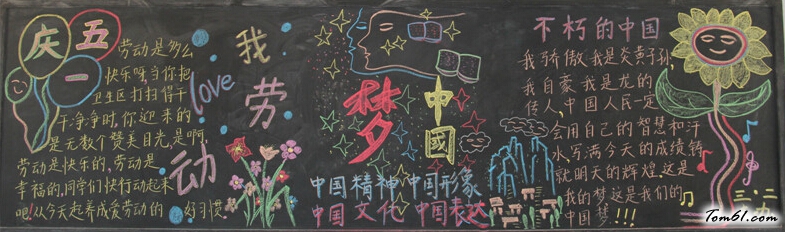 庆五一
劳动是多么
快乐呀当你把
卫生区打扫得干
干净净时,你迎来的
是无数个赞美目光,是啊
劳动是快乐的,劳动是
幸福的,同学们快行动起来
吧!从今天起养成爱劳动的好习惯.
love
我劳动
中国梦
中国精神 中国形象
中国文化 中国表达
不朽的中国
我骄傲,我是炎黄子孙
我自豪,我是龙的
传人,中国人民一定
会用自己的智慧和汗
水,写满今天的成绩铸
就明天的辉煌,这是
我的梦这是我们的
中国梦!!!
三.二
Tom61.com